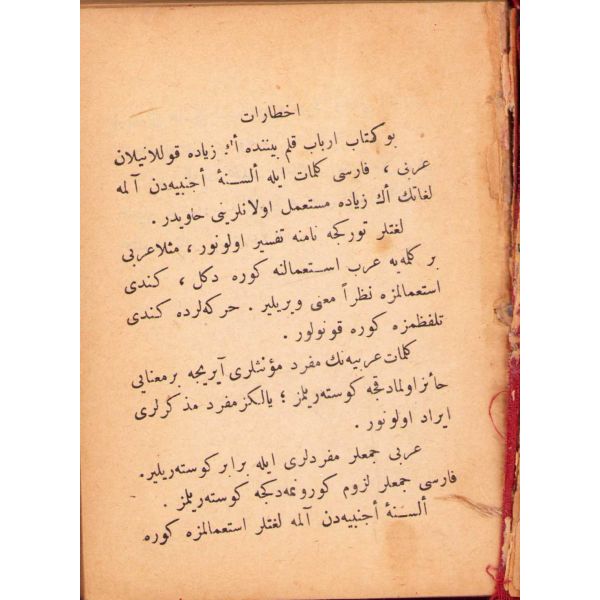 اخطارات
بو كتاب ارباب قلم بيننده أڭ زياده قوللانيلان
عربى ، فارسى كلمات ايله ألسنهٔ أجنبيه‌دن آلمه
لغاتك أڭ زياده مستعمل اولانلرينى حاويدر .
لغتلر توركجه نامنه تفسير اولونور ، مثلا عربى
بر كلمه‌يه عرب استعمالنه كوره دكل ، كندى
استعمالمزه نظراً معنى ويريلير . حركه‌لرده كندى
تلفظمزه كوره قونولور .
كلمات عربيه‌نك مفرد مؤنثلرى آيريجه بر معنايى
حائز اولمادقجه كوستەريلمز ؛ يالكز مفرد مذكرلرى
ايراد اولونور .
عربى جمعلر مفردلرى ايله برابر كوستەريلير.
فارسى جمعلر لزوم كورونمه‌دكجه كوستەريلمز .
ألسنهٔ أجنبيه‌دن آلمه لغتلر استعمالمزه كوره